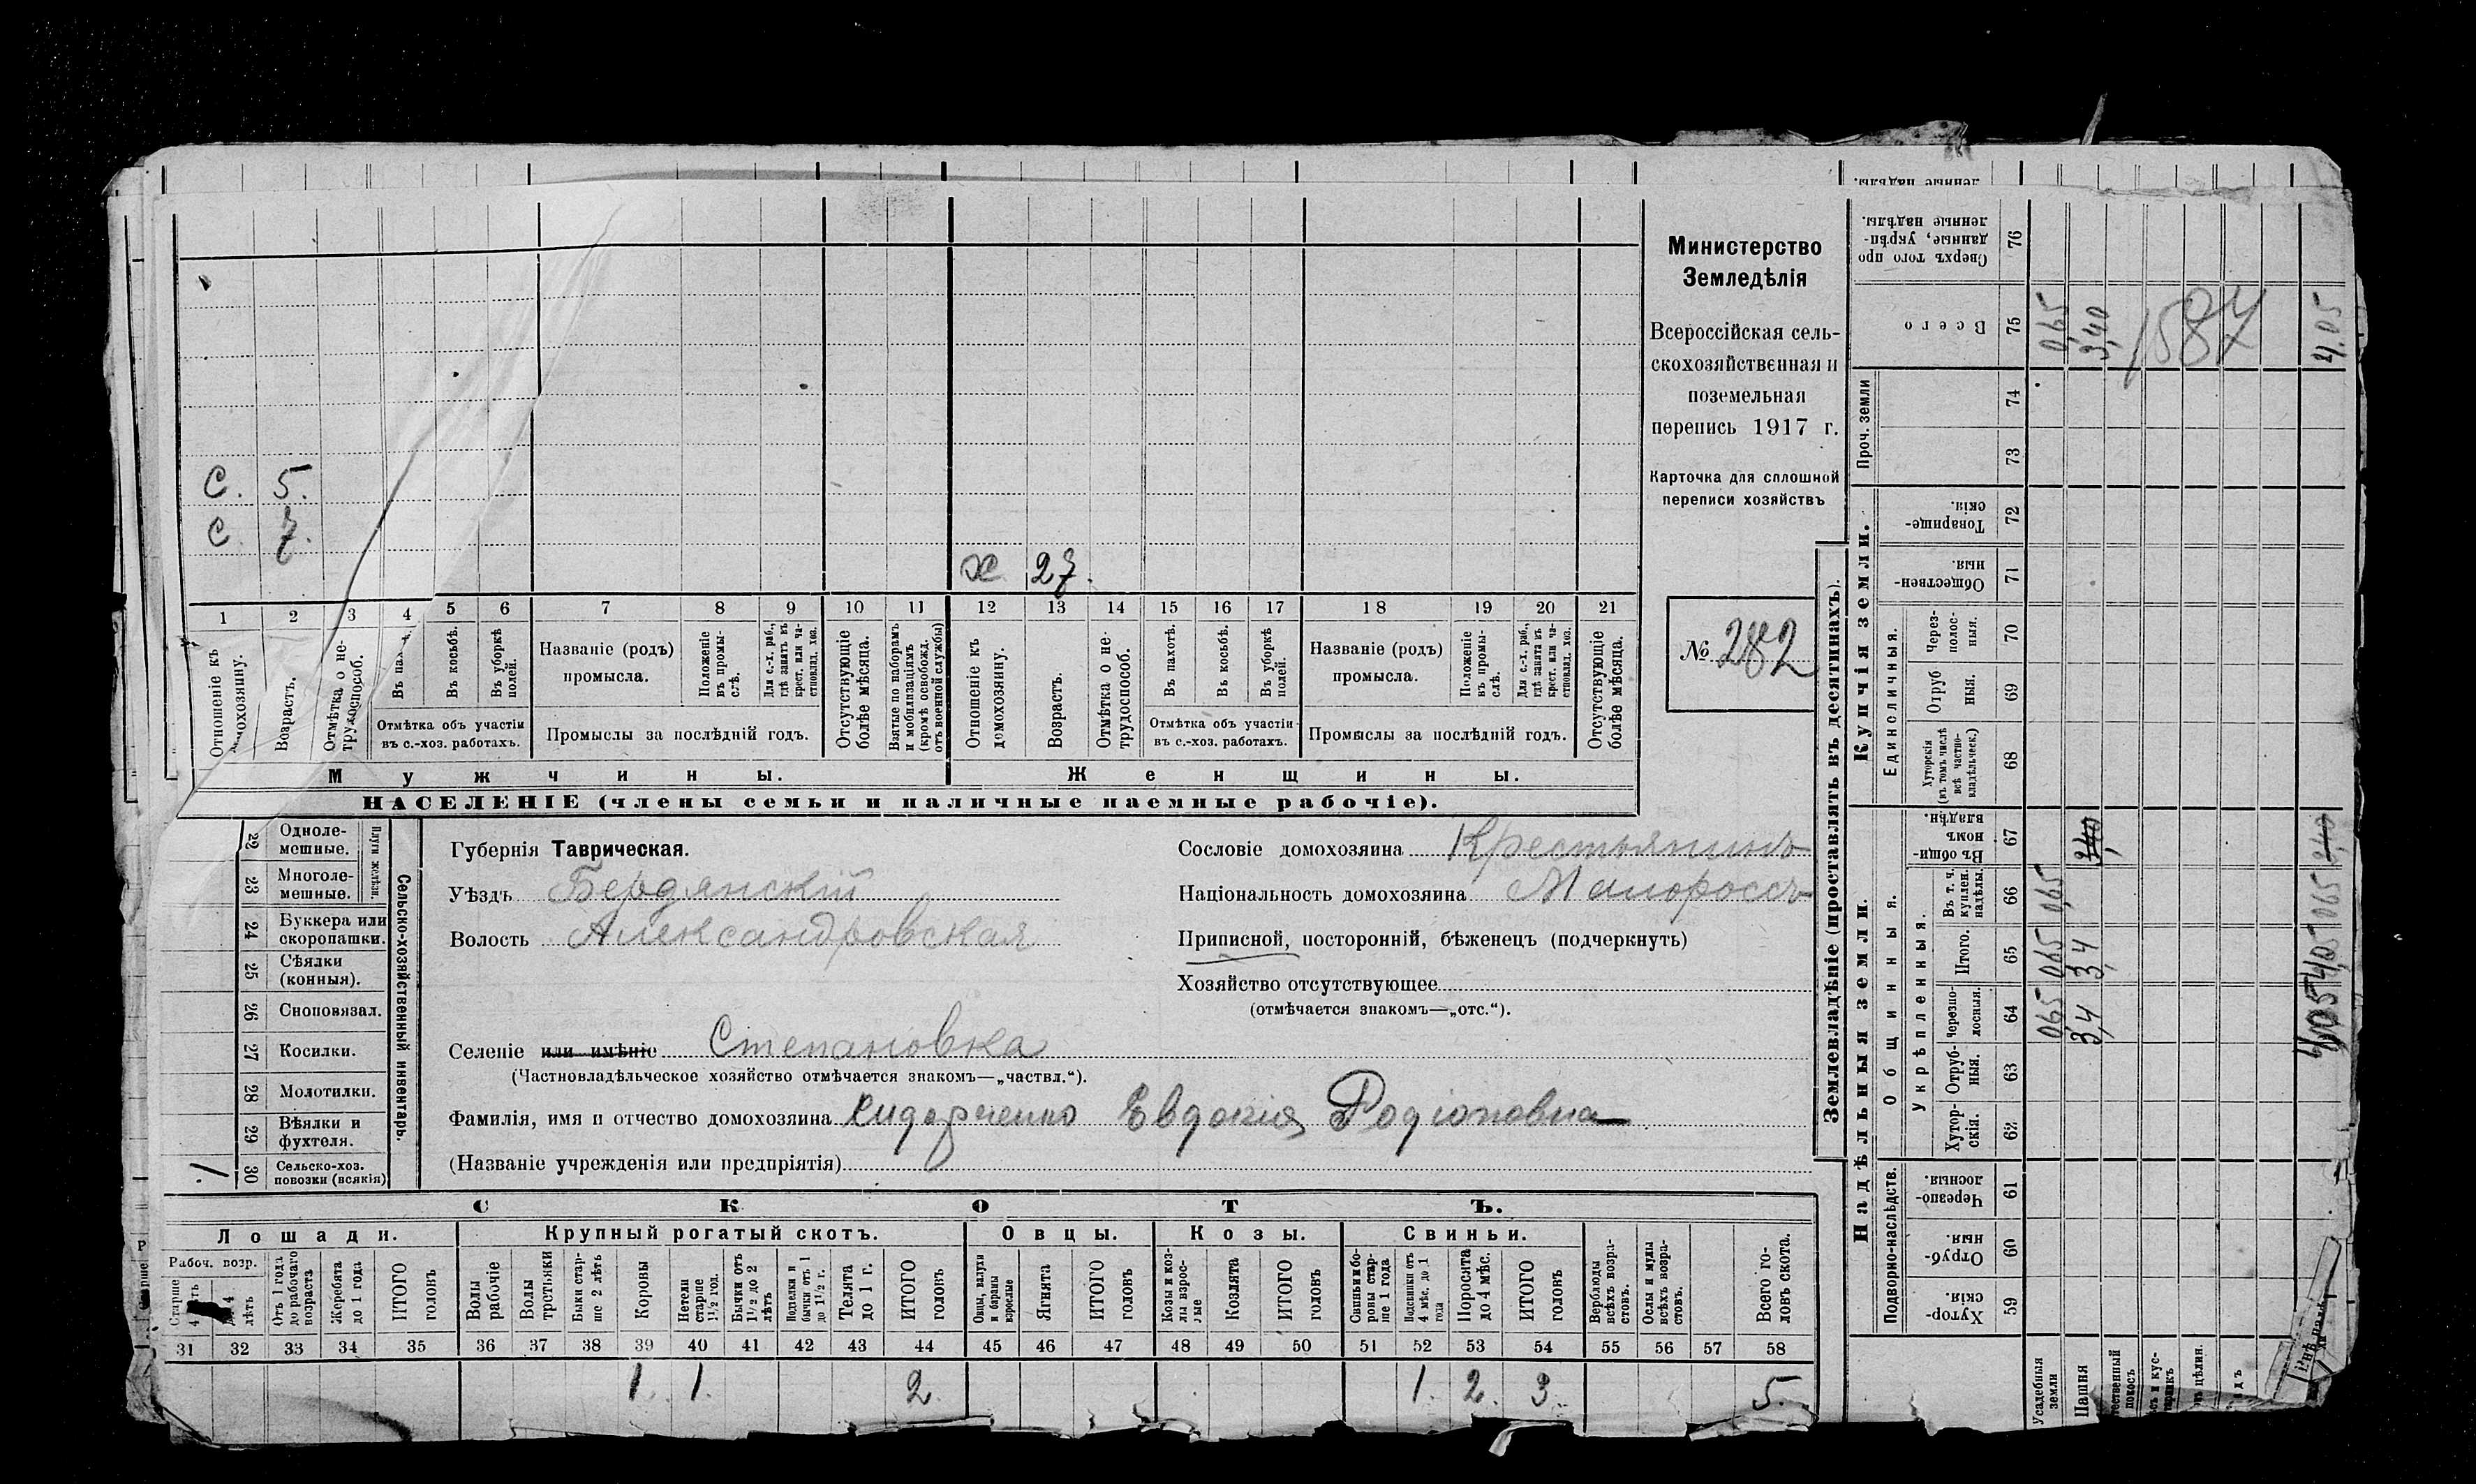 С. 5.
С. 7.
х 27.
1 2 3 4 5 6 7 8 9 10 11 12 13 14 15 16 17 18 19 20 21
Отношеніе къ домохозяину.
Возрастъ.
Отмѣтка о нетрудоспособ.
Въ косьбѣ.
Въ уборкѣ полей.
Отмѣтка объ участіи въ с.-хоз. работахъ.
Названіе (родъ) промысла.
Положеніе въ промыслѣ.
Для с.-х. раб., гдѣ занятъ въ крест. или частновлад. хоз.
Промыслы за послѣдній годъ.
Отсутствующіе болѣе мѣсяца.
Взятые по наборамъ и мобилизаціямъ (кромѣ освобожд. отъ военной службы)
Отношеніе къ домохозяину.
Возрастъ.
Отмѣтка о нетрудоспособ.
Въ пахотѣ.
Въ косьбѣ.
Въ уборкѣ полей.
Отмѣтка объ участіи въ с.-хоз. работахъ.
Названіе (родъ) промысла.
Положеніе въ промыслѣ.
Для с.-х. раб., гдѣ занята въ крест. или частновлад. хоз.
Промыслы за послѣдній годъ.
Отсутствующіе болѣе мѣсяца.
Мужчины.
Женщины.
НАСЕЛЕНІЕ (члены семьи и наличные наемные рабочіе).
Министерство
Земледѣлія
Всероссійская сель-
скохозяйственная и
поземельная
перепись 1917 г.
Карточка для сплошной
переписи хозяйствъ
№ 282
Сельско-хозяйственный инвентарь.
Плуги желѣзн.
22 Одноле-мешные.
23 Многоле-мешные.
24 Буккера или скоропашки.
25 Сѣялки (конныя).
26 Сноповязал.
27 Косилки.
28 Молотилки.
29 Вѣялки и фухтеля.
1 30 Сельско-хоз. повозки (всякія)
Губернія Таврическая.
Уѣздъ Бердянскій
Волость Александровская
Сословіе домохозяина Крестьянинъ
Національность домохозяина Малороссъ
Приписной, посторонній, бѣженецъ (подчеркнуть)
Хозяйство отсутствующее
(отмѣчается знакомъ—„отс.“).
Селеніе или имѣніе Степановка
(Частновладѣльческое хозяйство отмѣчается знакомъ—„частвл.“).
Фамилія, имя и отчество домохозяина Сидорченко Евдокія Родіоновна
(Названіе учрежденія или предпріятія)
СКОТЪ.
Лошади. Крупный рогатый скотъ. Овцы. Козы. Свиньи.
Рабоч. возр.
Старше 4 лѣтъ
До 4 лѣтъ
Отъ 1 года до рабочаго возраста
Жеребята до 1 года
ИТОГО головъ
Волы рабочіе
Волы третьяки
Быки старше 2 лѣтъ
Коровы
Нетели старше 1½ год.
Бычки отъ 1½ до 2 лѣтъ
Подтелки и бычки отъ 1 до 1½ г.
Телята до 1 г.
ИТОГО головъ
Овцы, валухи и бараны взрослые
Ягнята
ИТОГО головъ
Козы и козлы взрослые
Козлята
ИТОГО головъ
Свиньи и боровы старше 1 года
Подсвинки отъ 4 мѣс. до 1 года
Поросята до 4 мѣс.
ИТОГО головъ
Верблюды всѣхъ возрастовъ.
Ослы и мулы всѣхъ возрастовъ.
Всего головъ скота.
31 32 33 34 35 36 37 38 39 40 41 42 43 44 45 46 47 48 49 50 51 52 53 54 55 56 57 58
1. 1. 2. 1. 2. 3. 5.
Землевладѣніе (проставлять въ десятинахъ).
Надѣльныя земли.
Купчія земли.
Проч. земли
Подворно-наслѣдств.
Общинныя.
Укрѣпленныя.
Единоличныя.
Сверхъ того проданные, укрѣпленные надѣлы. 76
Всего 75 0,65 3,40 1587 4.05
74
73
Товарищескія. 72
Общественныя. 71
Черезполосныя. 70
Отрубныя. 69
Хуторскія (въ томъ числѣ всѣ частновладѣльческ.) 68
Въ общинномъ владѣн. 67 3,40 3,40
Въ т. ч. куплен. надѣлы. 66 0,65 0,65
Итого. 65 0,65 3,4 4,05
Черезполосныя. 64 0,65 3,4 4,05
Отрубныя. 63
Хуторскія. 62
Черезполосныя. 61
Отрубныя. 60
Хуторскія. 59
Усадебныя земли
Пашня